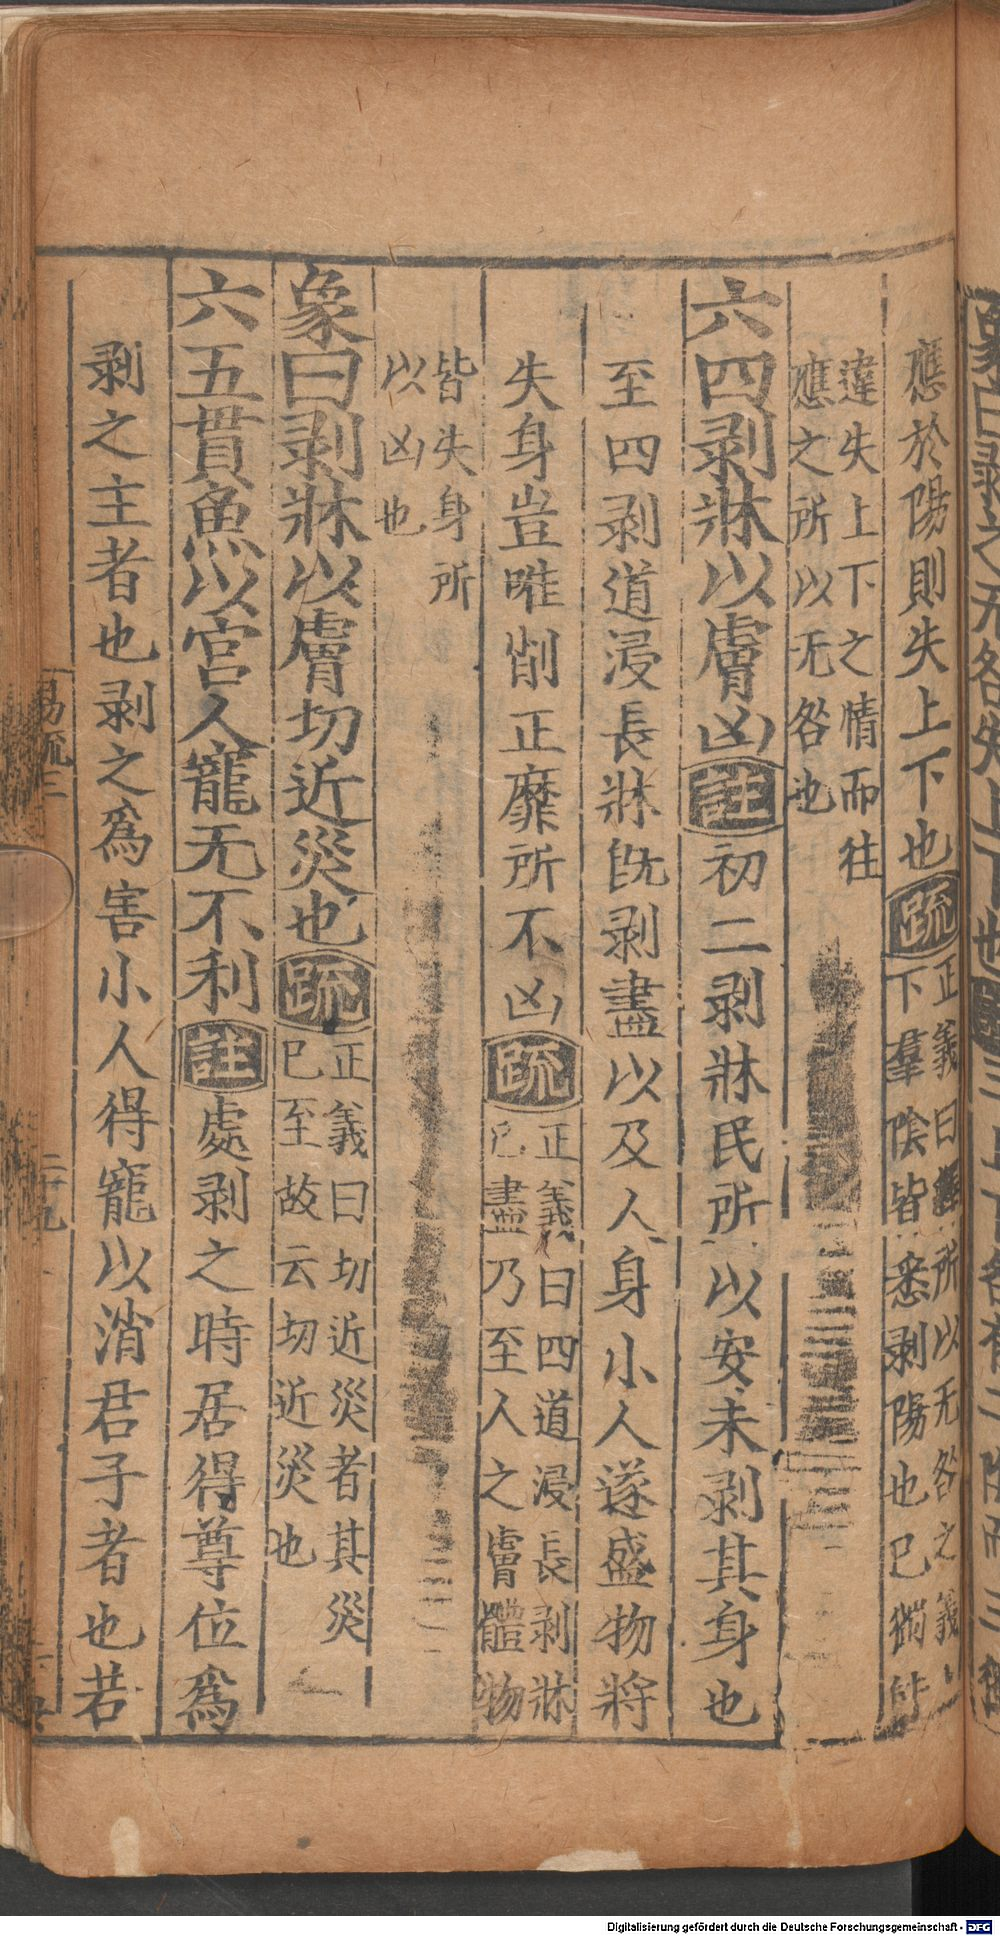 應於陽則失上下也疏正義曰釋所以无咎之義
下羣陰皆悉剥陽也已獨能
違失上下之情而往
應之所以无咎也
六四剥牀以膚凶註初二剥牀民所以安未剥其身也
至四剥道浸長牀旣剥盡以及人身小人遂盛物將
失身豈唯削正靡所不凶疏正義曰四道浸長剥牀
已盡乃至人之膚體物
皆失身所
以凶也
象曰剥牀以膚切近災也疏正義曰切近災者其災
已至故云切近災也
六五貫魚以宮人寵无不利註處剥之時居得尊位爲
剥之主者也剥之爲害小人得寵以消君子者也若
易疏三
二十九
Digitalisierung gefördert durch die Deutsche Forschungsgemeinschaft - DFG